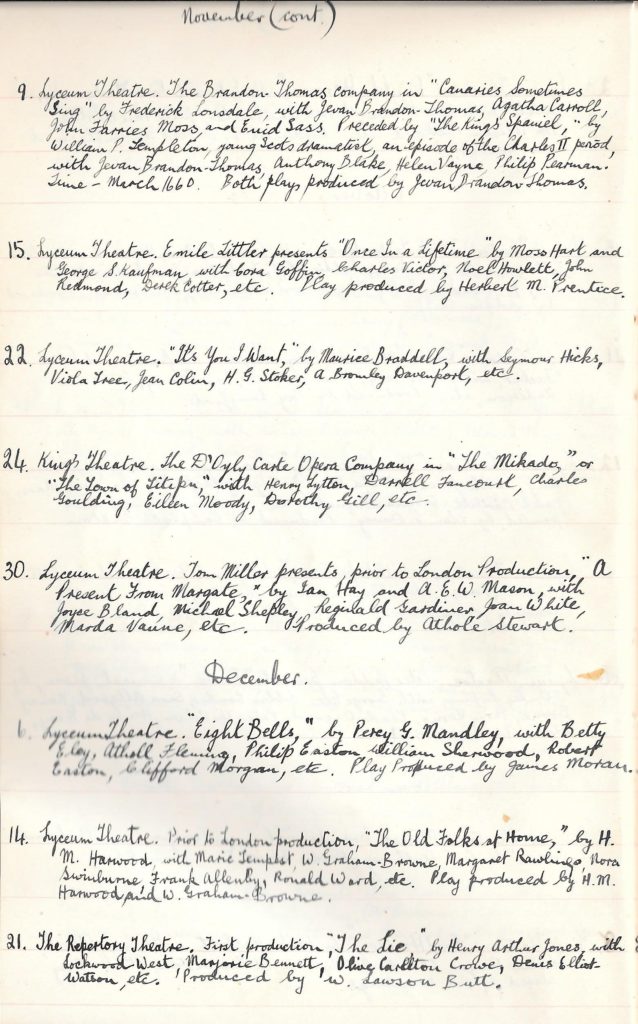 November (cont.)
9. Lyceum Theatre. The Brandon-Thomas company in "Canaries Sometimes
Sing" by Frederick Lonsdale, with Jevan Brandon-Thomas, Agatha Carroll,
John Farries Moss, and Enid Sass. Preceded by "The King's Spaniel," by
William P. Templeton, young Scots dramatist, an episode of the Charles II period,
with Jevan Brandon-Thomas, Anthony Blake, Helen Vayne, Philip Pearman.
Time - March 1660. Both plays produced by Jevan Brandon Thomas.
15. Lyceum Theatre. Emile Littler presents "Once In a Lifetime" by Moss Hart and
George S. Kaufman with Cora Goffin, Charles Victor, Noel Howlett, John
Redmond, Derek Cotter, etc. Play produced by Herbert M. Prentice.
22. Lyceum Theatre. "It's You I Want," by Maurice Braddell, with Seymour Hicks,
Viola Tree, Jean Colin, H. G. Stoker, A Bromley Davenport, etc.
24. King's Theatre. The D'Oyly Carte Opera Company in "The Mikado," or
"The Town of Titipu," with Henry Lytton, Darrell Fancourt, Charles
Goulding, Eileen Moody, Dorothy Gill, etc.
30. Lyceum Theatre. Tom Miller presents, prior to London Production, "A
Present From Margate," by Ian Hay and A. E. W. Mason, with
Joyce Bland, Michael Shepley, Reginald Gardiner, Joan White,
Marda Vanne, etc. Produced by Athole Stewart.
December.
6. Lyceum Theatre. "Eight Bells," by Percy G. Mandley, with Betty
Eley, Atholl Fleming, Philip Easton William Sherwood, Robert
Easton, Clifford Morgan, etc. Play Produced by James Moran.
14. Lyceum Theatre. Prior to London production, "The Old Folks at Home," by H.
M. Harwood, with Marie Tempest, W. Graham-Browne, Margaret Rawlings, Nora
Swinburne Frank Allenby, Ronald Ward, etc. Play produced by H. M.
Harwood and W. Graham-Browne.
21. The Repertory Theatre. First production, "The Lie" by Henry Arthur Jones, with
Lockwood West, Marjorie Bennett, Olive Carlton Crowe, Denis Elliot-
Watson, etc. Produced by W. Lawson Butt.